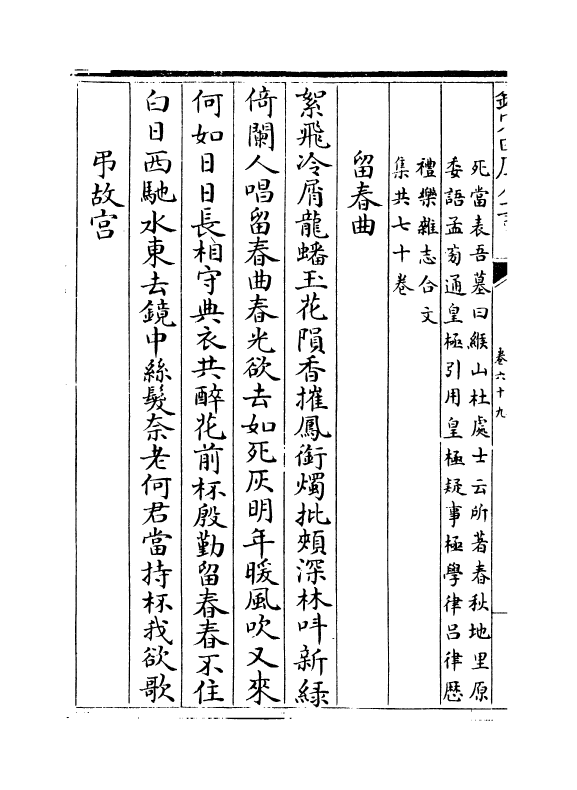 卷六十九
死當表吾墓曰緱山杜處士云所著春秋地里原
委語孟旁通皇極引用皇極疑事極學律吕律厯
禮樂雜志合文
集共七十卷
留春曲
絮飛冷屑龍蟠玉花隕香摧鳳銜燭批頰深林呌新緑
倚闌人唱留春曲春光欲去如死灰明年暖風吹又來
何如日日長相守典衣共醉花前杯殷勤留春春不住
白日西馳水東去鏡中絲髮奈老何君當持杯我欲歌
弔故宫